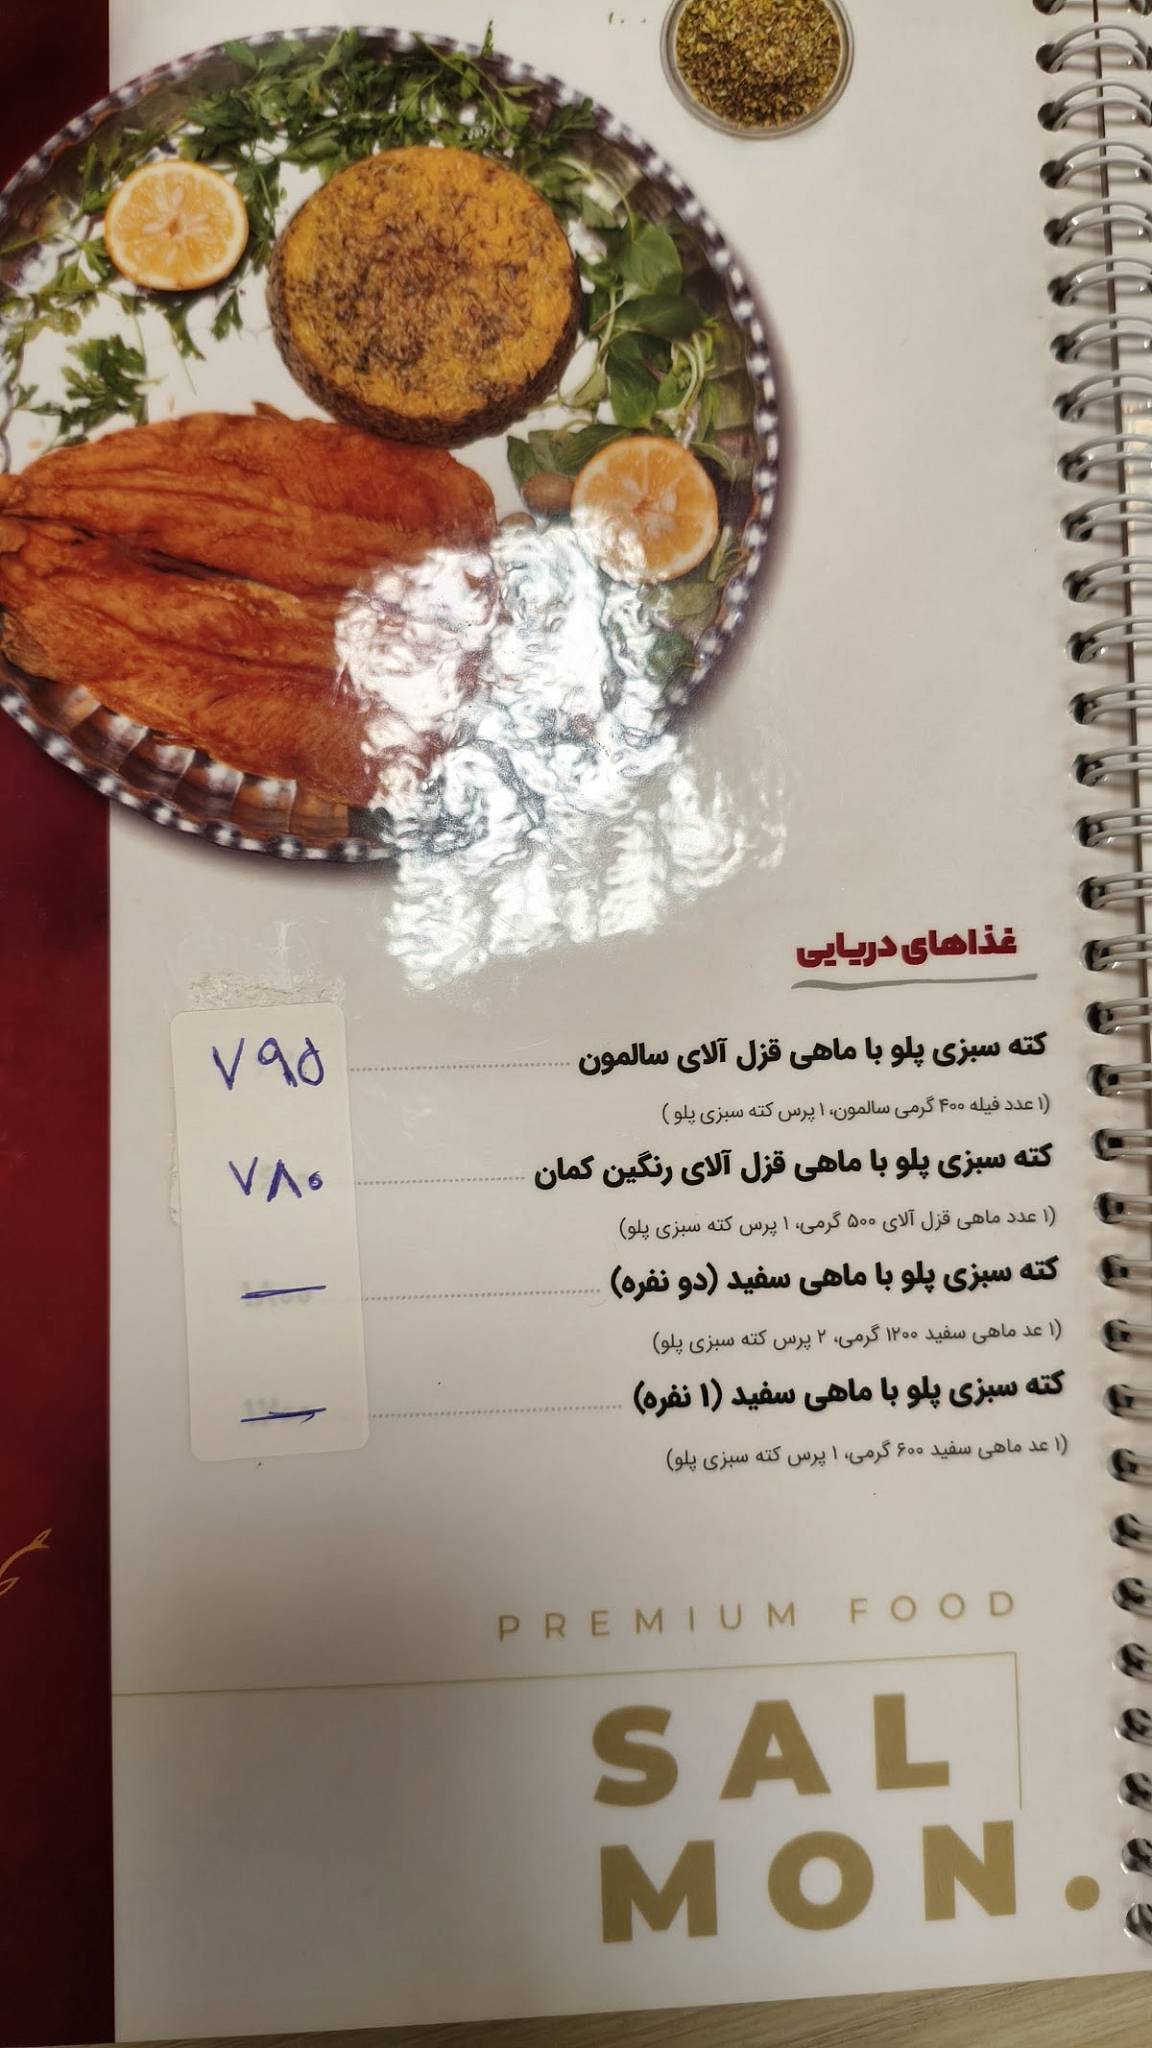 غذاهای دریایی
کته سبزی پلو با ماهی قزل آلای سالمون ........ ۷۹۵
(۱ عدد فیله ۴۰۰ گرمی سالمون، ۱ پرس کته سبزی پلو )
کته سبزی پلو با ماهی قزل آلای رنگین کمان ........ ۷۸۰
(۱ عدد ماهی قزل آلای ۵۰۰ گرمی، ۱ پرس کته سبزی پلو)
کته سبزی پلو با ماهی سفید (دو نفره) ........
(۱ عد ماهی سفید ۱۲۰۰ گرمی، ۲ پرس کته سبزی پلو)
کته سبزی پلو با ماهی سفید (۱ نفره) ........
(۱ عد ماهی سفید ۶۰۰ گرمی، ۱ پرس کته سبزی پلو)
PREMIUM FOOD
SAL
MON.